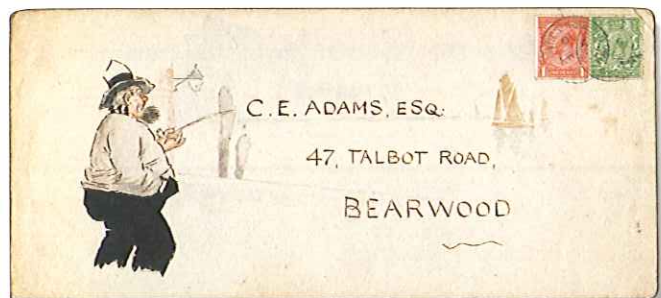 C. E. ADAMS, ESQ:
47, TALBOT ROAD,
BEARWOOD